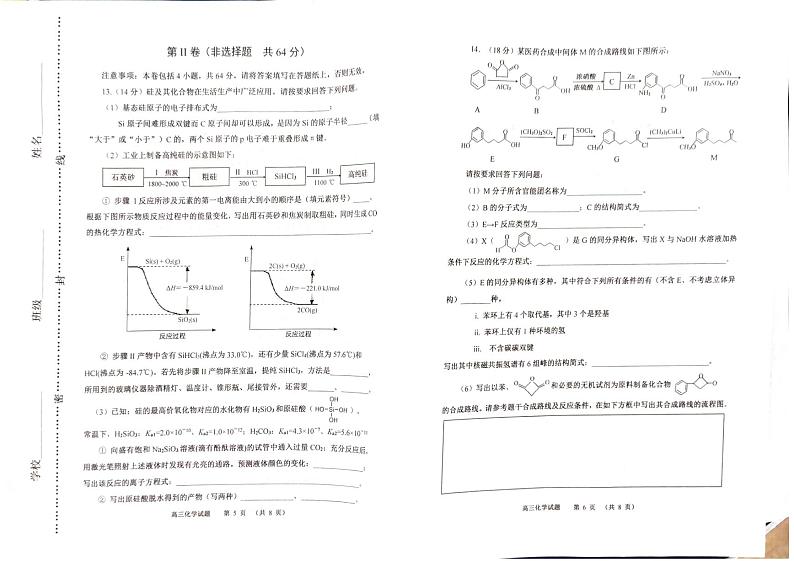 学校
班级
姓名
密
封
线
第 II 卷（非选择题 共 64 分）
注意事项：本卷包括 4 小题，共 64 分，请将答案填写在答题纸上，否则无效。
13.（14分）硅及其化合物在生活生产中广泛应用。请按要求回答下列问题。
（1）基态硅原子的电子排布式为
Si 原子间难形成双键而 C 原子间却可以形成，是因为 Si 的原子半径（填
“大于”或“小于”）C 的，两个 Si 原子的 p 电子难于重叠形成 π 键。
（2）工业上制备高纯硅的示意图如下：
石英砂 I 焦炭 1800~2000 ℃ 粗硅 II HCl 300 ℃ SiHCl₃ III H₂ 1100 ℃ 高纯硅
① 步骤 I 反应所涉及元素的第一电离能由大到小的顺序是（填元素符号）
根据下图所示物质反应过程中的能量变化，写出用石英砂和焦炭制取粗硅，同时生成 CO
的热化学方程式：
E Si(s) + O₂(g) ΔH = −859.4 kJ/mol SiO₂(s) 反应过程
E 2C(s) + O₂(g) ΔH = −221.0 kJ/mol 2CO(g) 反应过程
② 步骤 II 产物中含有 SiHCl₃(沸点为 33.0℃)，还有少量 SiCl₄(沸点为 57.6℃)和
HCl(沸点为 -84.7℃)。若先将步骤 II 产物降至室温，提纯 SiHCl₃，方法是
所用到的玻璃仪器除酒精灯、温度计、锥形瓶、尾接管外，还需要 、
（3）已知：硅的最高价氧化物对应的水化物有 H₂SiO₃ 和原硅酸（ OH HO-Si-OH OH ），
常温下，H₂SiO₃：Kₐ₁=2.0×10⁻¹⁰、Kₐ₂=1.0×10⁻¹²；H₂CO₃：Kₐ₁=4.3×10⁻⁷、Kₐ₂=5.6×10⁻¹¹
① 向盛有饱和 Na₂SiO₃ 溶液(滴有酚酞溶液)的试管中通入过量 CO₂；充分反应后，
用激光笔照射上述液体时发现有光亮的通路。预测液体颜色的变化：
写出该反应的离子方程式：
② 写出原硅酸脱水得到的产物（写两种） 、
高三化学试题 第 5 页 （共 8 页）
14.（18分）某医药合成中间体 M 的合成路线如下图所示：
A AlCl₃ B 浓硝酸 浓硫酸 Δ C Zn HCl D NaNO₂ H₂SO₄, H₂O
E (CH₃O)₂SO₂ F SOCl₂ G (CH₃)₂CuLi M
请按要求回答下列问题：
（1）M 分子所含官能团名称为
（2）B 的分子式为 ；C 的结构简式为
（3）E→F 反应类型为
（4）X（ ）是 G 的同分异构体，写出 X 与 NaOH 水溶液加热
条件下反应的化学方程式：
（5）E 的同分异构体有多种，其中符合下列所有条件的有（不含 E、不考虑立体异
构） 种，
i. 苯环上有 4 个取代基，其中 3 个是羟基
ii. 苯环上仅有 1 种环境的氢
iii. 不含碳碳双键
写出其中核磁共振氢谱有 6 组峰的结构简式：
（6）写出以苯、 和必要的无机试剂为原料制备化合物
的合成路线。请参考题干合成路线及反应条件，在如下方框中写出其合成路线的流程图。
高三化学试题 第 6 页 （共 8 页）